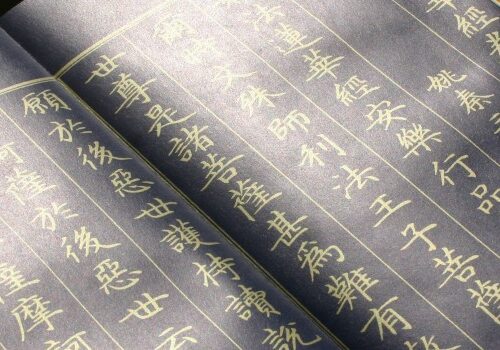 華經
姚秦三
法蓮華經安樂行品
爾時文殊師利法王子菩薩
世尊是諸菩薩甚爲難有
願於後惡世護持讀說
訶薩於後惡世云
薩摩訶